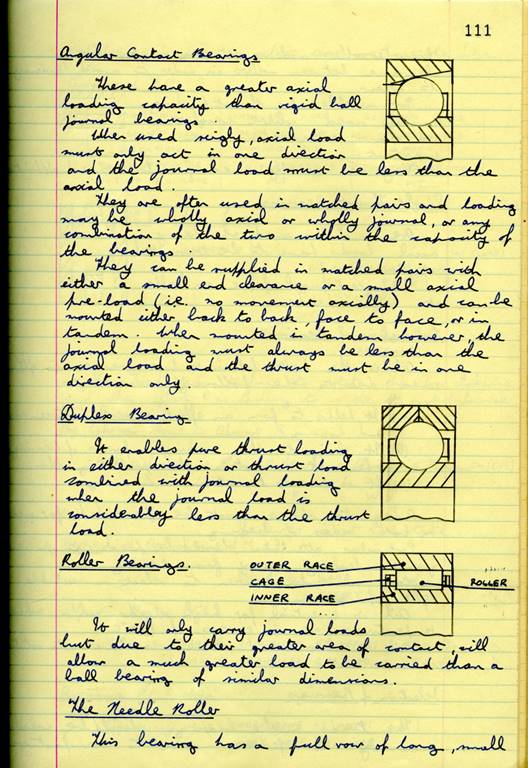 111
Angular Contact Bearings
These have a greater axial
loading capacity than rigid ball
journal bearings.
When used singly, axial load
must only act in one direction
and the journal load must be less than the
axial load.
They are often used in matched pairs and loading
may be wholly axial or wholly journal, or any
combination of the two within the capacity of
the bearings.
They can be supplied in matched pairs with
either a small end clearance or a small axial
pre-load (i.e. no movement axially) and can be
mounted either back to back, face to face, or in
tandem. When mounted in tandem however, the
journal loading must always be less than the
axial load and the thrust must be in one
direction only.
Duplex Bearing
It enables pure thrust loading
in either direction or thrust load
combined with journal loading
when the journal load is
considerabley less than the thrust
load.
Roller Bearings.
OUTER RACE
CAGE
ROLLER
INNER RACE
It will only carry journal loads
but due to their greater area of contact, will
allow a much greater load to be carried than a
ball bearing of similar dimensions.
The Needle Roller
This bearing has a full row of long, small